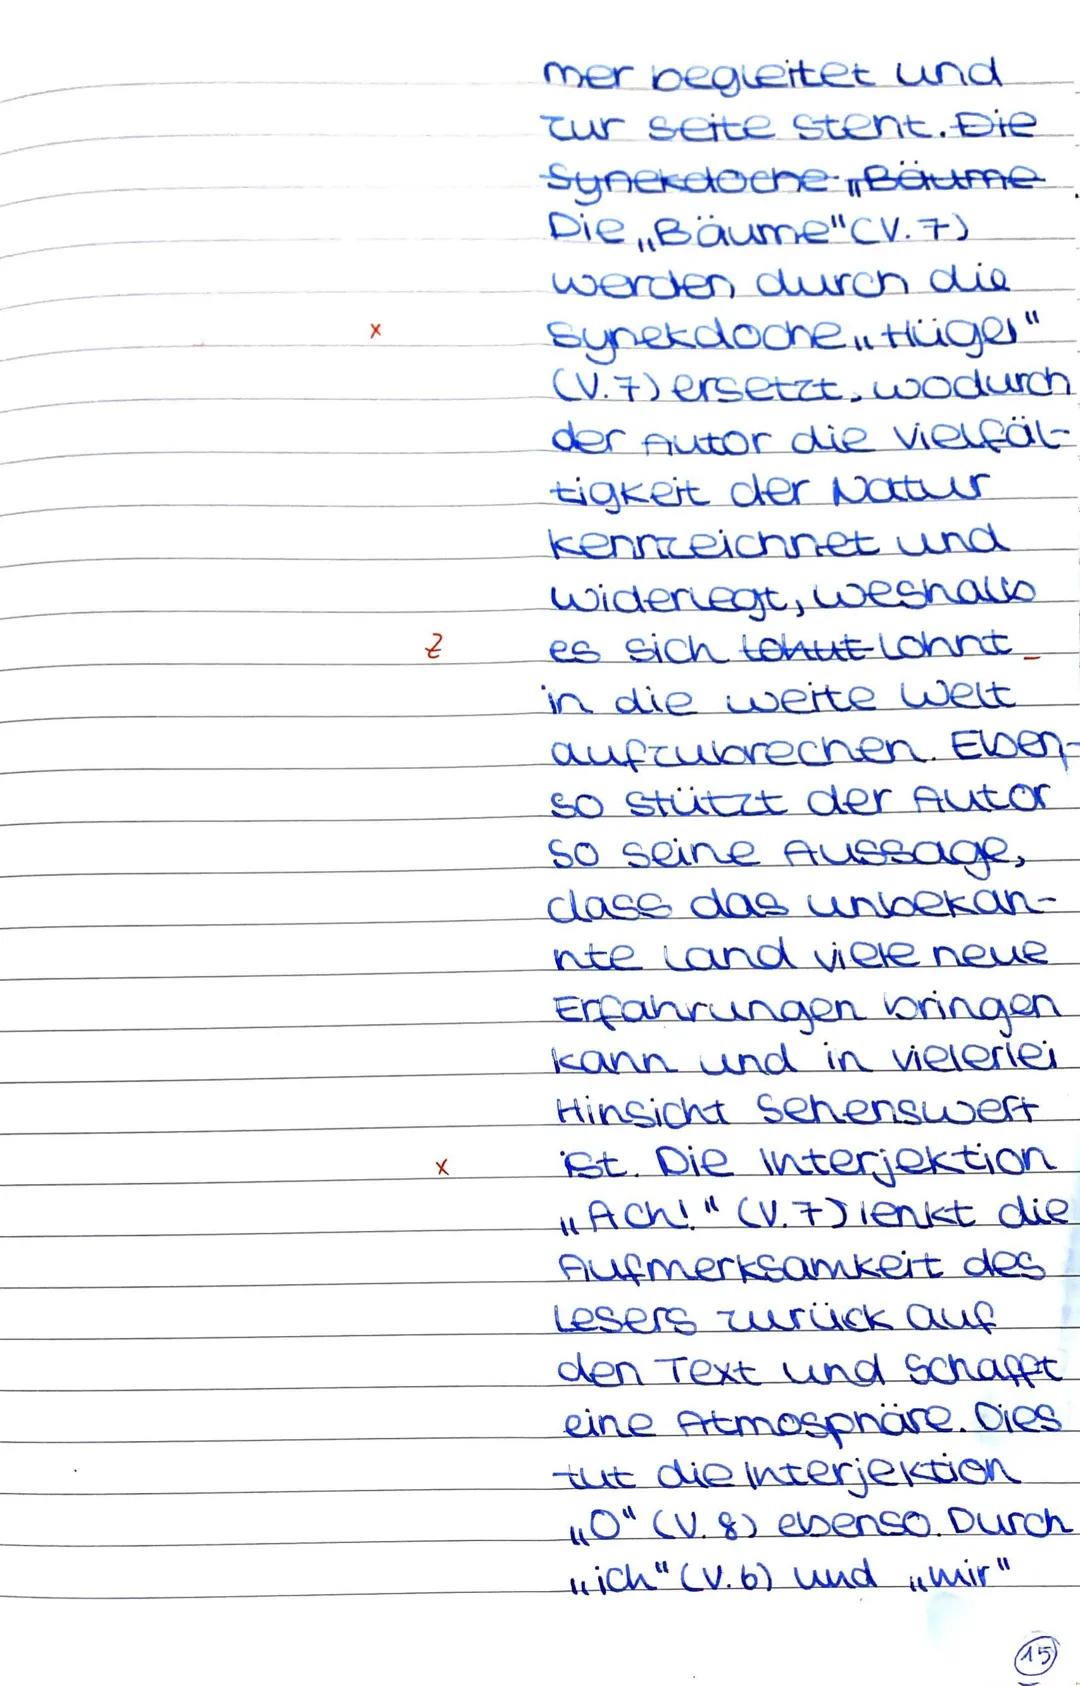 mer begleitet und
zur seite steht. Die
Synekdoche „Bäume
Die „Bäume" (V. 7)
werden durch die
x Synekdoche „Hügel"
(V. 7) ersetzt, wodurch
der Autor die Vielfäl-
tigkeit der Natur
kennzeichnet und
widerlegt, weshalb
Z es sich lohnt lohnt
in die weite Welt
aufzubrechen. Eben-
so stützt der Autor
so seine Aussage,
dass das unbekan-
nte Land viele neue
Erfahrungen bringen
kann und in vielerlei
Hinsicht sehenswert
x ist. Die Interjektion
„Ach!" (V. 7) lenkt die
Aufmerksamkeit des
Lesers zurück auf
den Text und schafft
eine Atmosphäre. Dies
tut die Interjektion
„O" (V. 8) ebenso. Durch
„ich" (V. 6) und „mir"
15